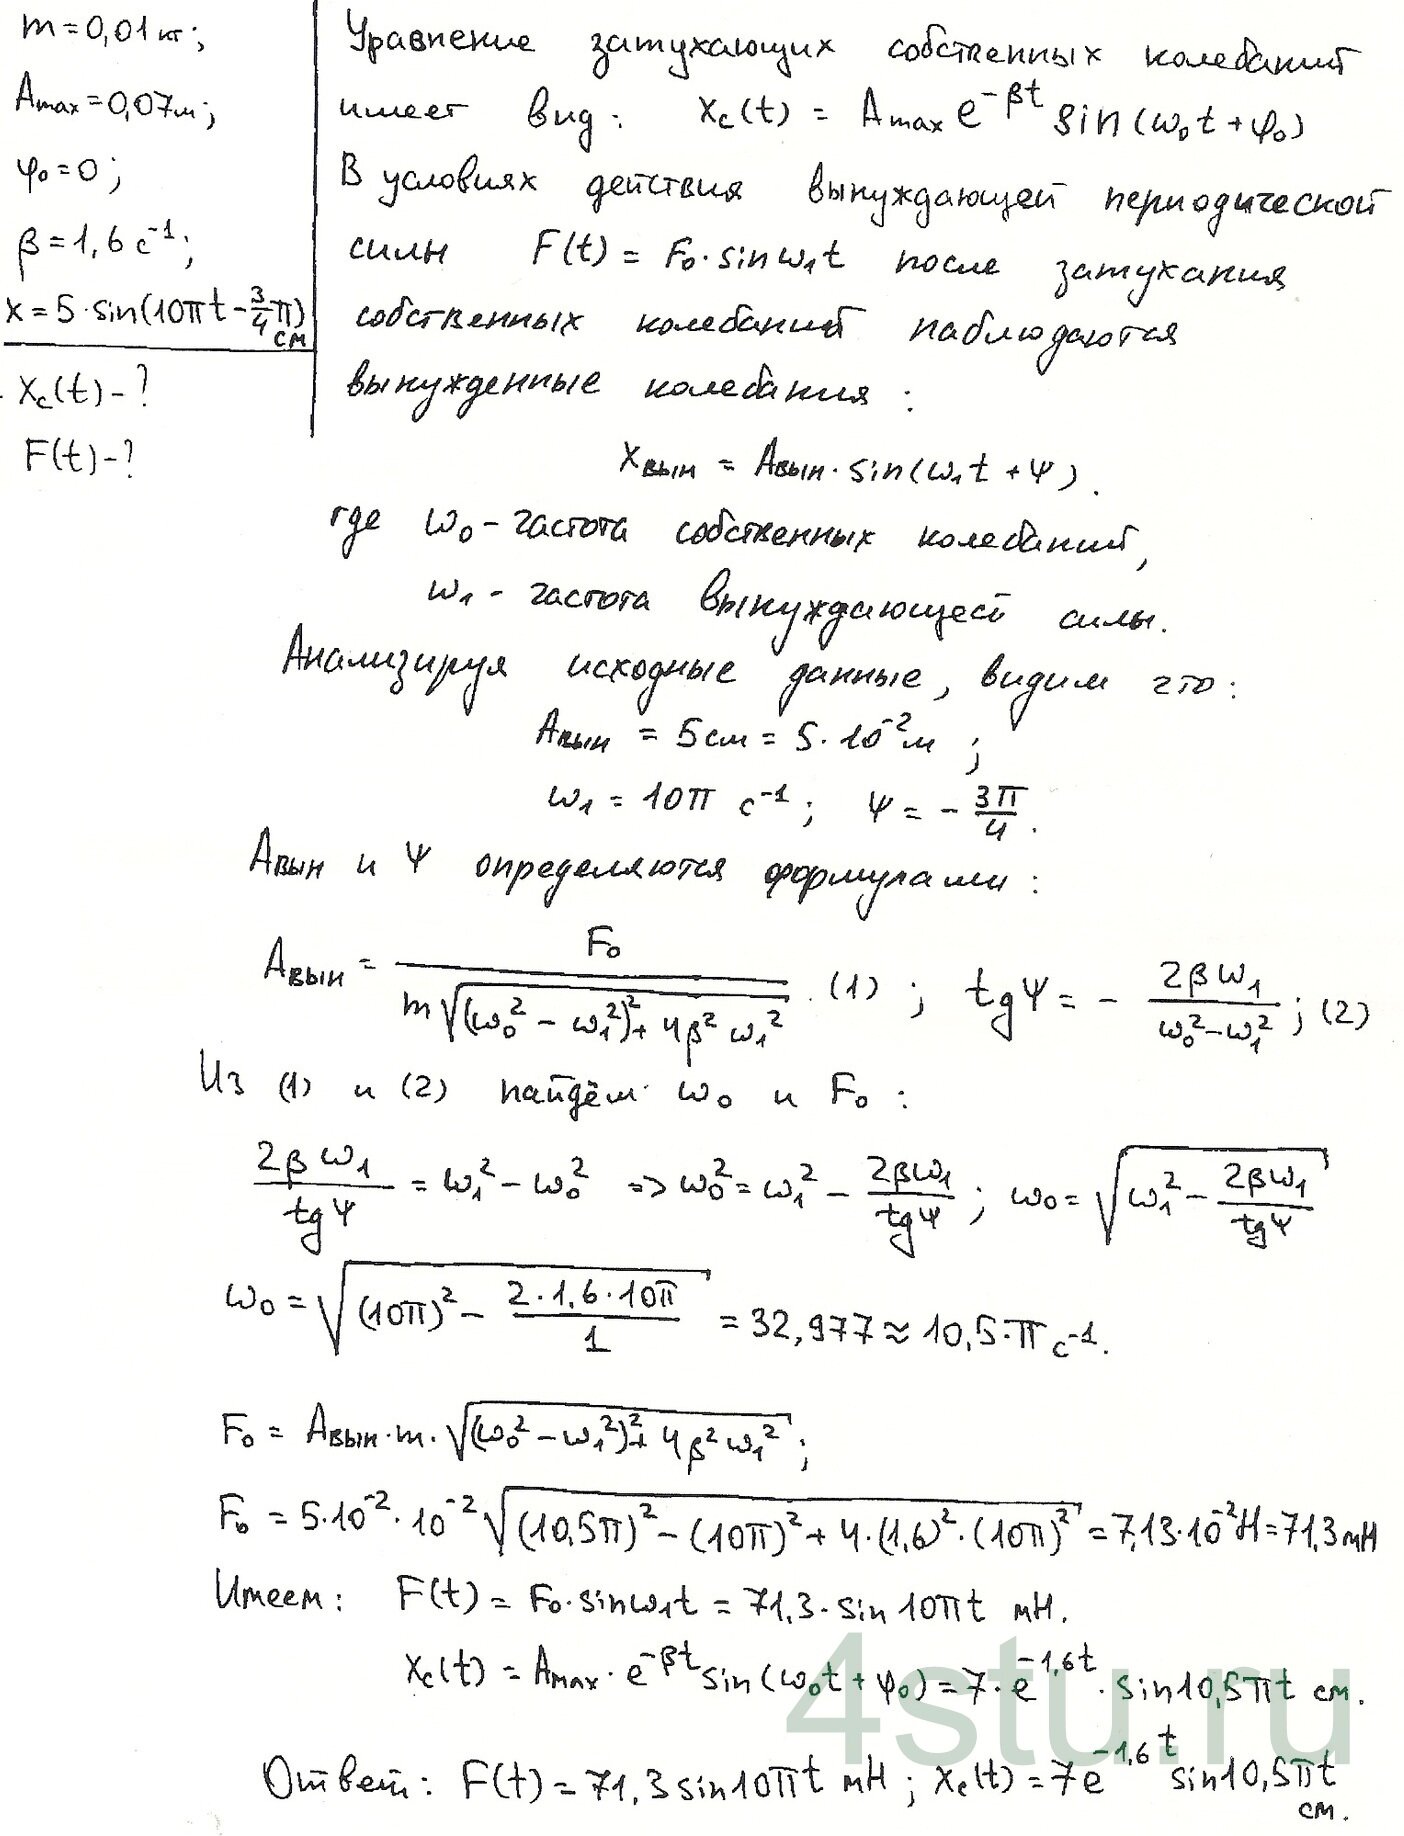 m = 0,01 кг;
Amax = 0,07м;
φ₀ = 0;
β = 1,6 с⁻¹;
x = 5·sin(10πt - 3/4 π) см
Xc(t) - ?
F(t) - ?
Уравнение затухающих собственных колебаний
имеет вид: Xc(t) = Amax e^(-βt) sin(ω₀t + φ₀)
В условиях действия вынуждающей периодической
силы F(t) = F₀·sinω₁t после затухания
собственных колебаний наблюдаются
вынужденные колебания:
Xвын = Aвын·sin(ω₁t + ψ).
где ω₀ - частота собственных колебаний,
ω₁ - частота вынуждающей силы.
Анализируя исходные данные, видим что:
Aвын = 5см = 5·10⁻²м;
ω₁ = 10π с⁻¹; ψ = - 3π/4.
Aвын и ψ определяются формулами:
Aвын = F₀ / (m√((ω₀² - ω₁²)² + 4β²ω₁²)). (1); tgψ = - 2βω₁/(ω₀² - ω₁²); (2)
Из (1) и (2) найдём ω₀ и F₀:
2βω₁/tgψ = ω₁² - ω₀² => ω₀² = ω₁² - 2βω₁/tgψ; ω₀ = √(ω₁² - 2βω₁/tgψ)
ω₀ = √((10π)² - 2·1,6·10π/1) = 32,977 ≈ 10,5·π с⁻¹.
F₀ = Aвын·m·√((ω₀² - ω₁²)² + 4β²ω₁²);
F₀ = 5·10⁻²·10⁻²√((10,5π)² - (10π)² + 4·(1,6)²·(10π)²) = 7,13·10⁻²Н = 71,3мН
Имеем: F(t) = F₀·sinω₁t = 71,3·sin10πt мН.
Xc(t) = Amax·e^(-βt) sin(ω₀t + φ₀) = 7·e^(-1,6t)·sin10,5πt см.
Ответ: F(t) = 71,3sin10πt мН; Xc(t) = 7e^(-1,6t) sin10,5πt
см.
4stu.ru